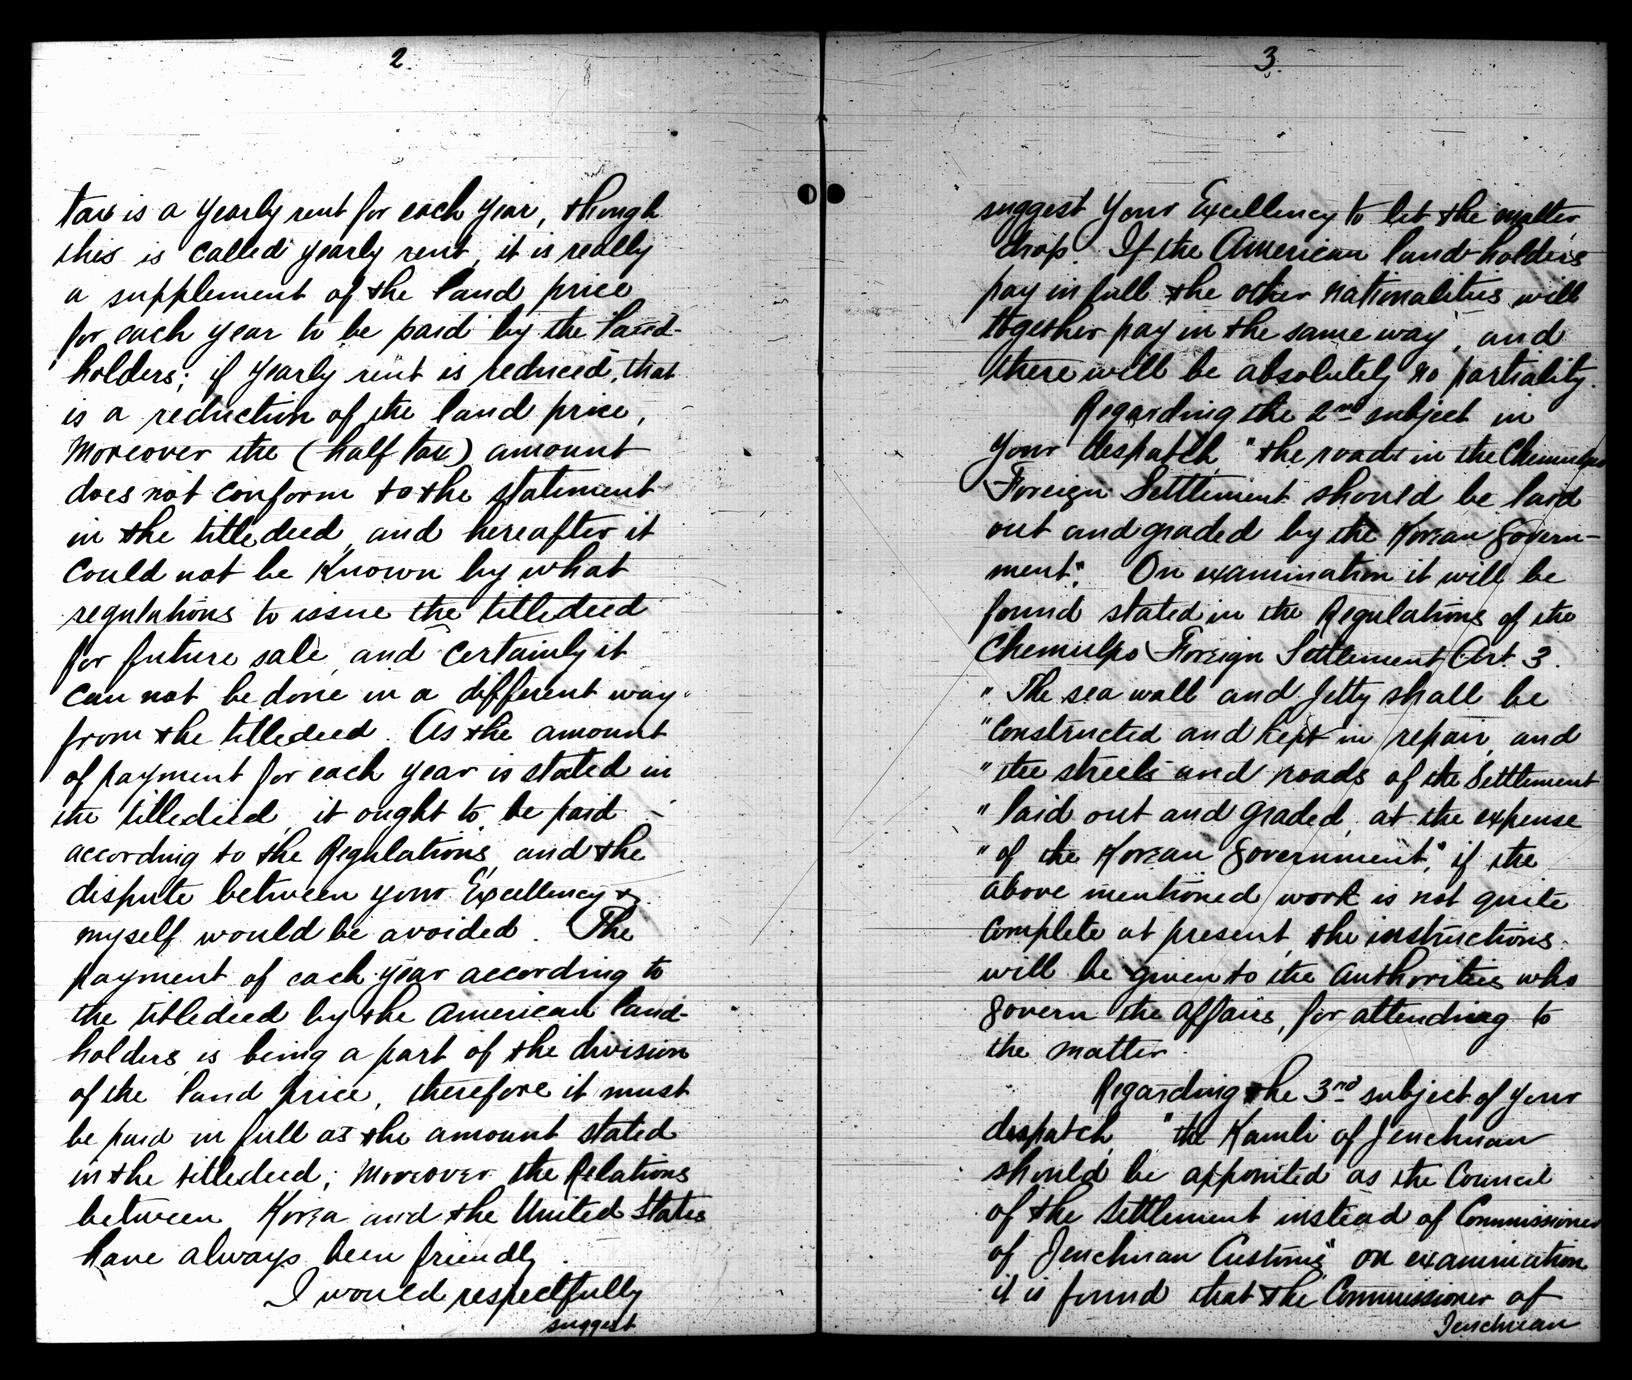 2.
tax is a yearly rent for each year, though
this is called yearly rent, it is really
a supplement of the land price
for each year to be paid by the land-
holders; if yearly rent is reduced, that
is a reduction of the land price,
moreover the (half tax) amount
does not conform to the statement
in the titledeed, and hereafter it
could not be known by what
regulations to issue the titledeed
for future sale, and certainly it
can not be done in a different way
from the titledeed. As the amount
of payment for each year is stated in
the titledeed, it ought to be paid
according to the Regulations, and the
dispute between your Excellency &
myself would be avoided. The
payment of each year according to
the titledeed by the American land-
holders is being a part of the division
of the land price, therefore it must
be paid in full as the amount stated
in the titledeed; moreover the Relations
between Korea and the United States
have always been friendly.
I would respectfully
suggest
3.
suggest Your Excellency to let the matter
drop. If the American land-holders
pay in full the other nationalities will
together pay in the same way, and
there will be absolutely no partiality.
Regarding the 2nd subject in
your despatch "the roads in the Chemulpo
Foreign Settlement should be laid
out and graded by the Korean Govern-
ment". On examination it will be
found stated in the Regulations of the
Chemulpo Foreign Settlement Art. 3.
" The sea wall and jetty shall be
" constructed and kept in repair, and
" the streets and roads of the Settlement
" laid out and graded, at the expense
" of the Korean Government", if the
above mentioned work is not quite
complete at present, the instructions
will be given to the authorities who
govern the affairs, for attending to
the matter.
Regarding the 3nd subject of your
despatch, "the Kamli of Jenchuan
should be appointed as the Council
of the Settlement instead of Commissioner
of Jenchuan Customs" on examination
it is found that the Commissioner of
Jenchuan